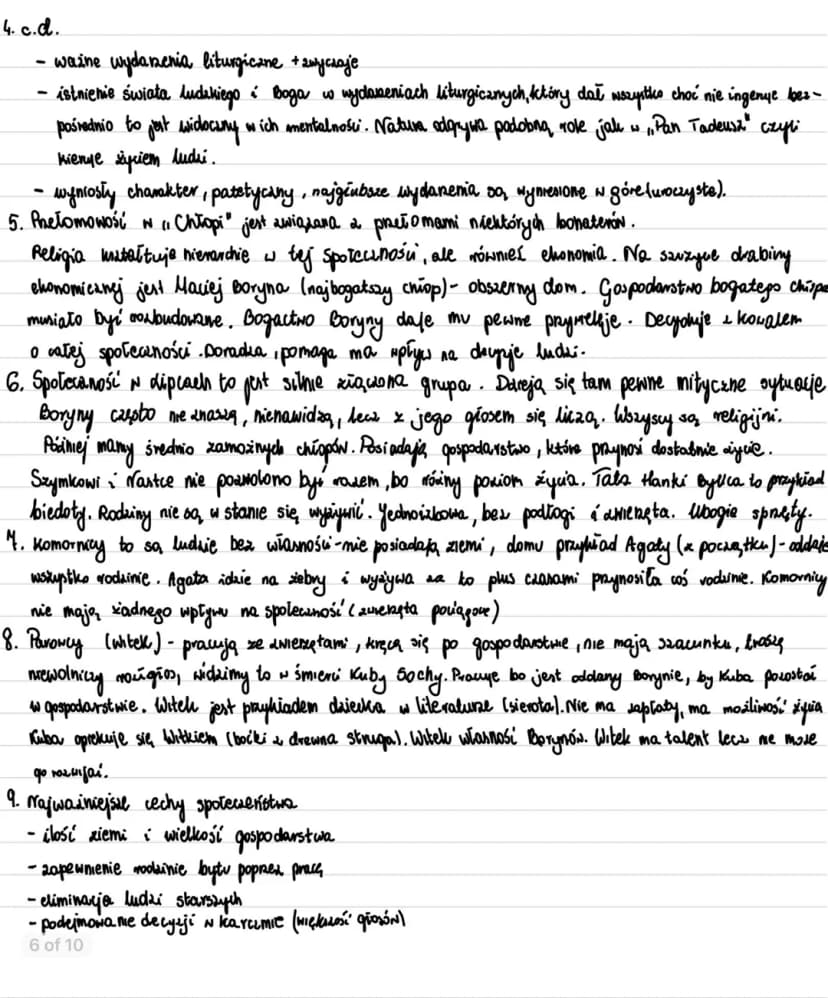 4. c.d.
- ważne wydarzenia liturgiczne + zwyczaje
- istnienie świata ludzkiego i Boga w wydarzeniach liturgicznych, który dał wszystko choć nie ingeruje bez-
pośrednio to jest widoczny w ich mentalności. Natura odgrywa podobną role jak w „Pan Tadeusz" czyli
kieruje życiem ludzi.
- wyniosły charakter, patetyczny, najgłubsze wydarzenia są wyniesione w górę (uroczyste).
5. Przełomowość w „Chłopi" jest związana z przełomami niektórych bohaterów.
Religia kształtuje hierarchie w tej społeczności, ale również ekonomia. Na szczycie drabiny
ekonomicznej jest Maciej Boryna (najbogatszy chłop) - obszerny dom. Gospodarstwo bogatego chłopa
musiało być rozbudowane. Bogactwo Boryny daje mu pewne przywileje. Decyduje z kowalem
o całej społeczności. Doradza, pomaga ma wpływ na decyzje ludzi.
6. Społeczność w Lipcach to jest silnie złączona grupa. Dzieją się tam pewne mityczne sytuacje
Boryny często nie znoszą, nienawidzą, lecz z jego głosem się liczą. Wszyscy są religijni.
Później mamy średnio zamożnych chłopów. Posiadają gospodarstwo, które przynosi dostatnie życie.
Szymkowi i Nastce nie pozwolono być razem, bo różny poziom życia. Tata Hanki Bylica to przykład
biedoty. Rodziny nie są w stanie się wyżywić. Jednoizbowa, bez podłogi i zwierzęta. Ubogie sprzęty.
7. Komornicy to są ludzie bez własności - nie posiadają ziemi, domu przykład Agaty (z początku) - oddaje
wszystko rodzinie. Agata idzie na żebry i wyżywa za to plus czasami przynosiła coś rodzinie. Komornicy
nie mają żadnego wpływu na społeczność (zwierzęta pociągowe)
8. Parobcy (Witek) - pracują ze zwierzętami, kręcą się po gospodarstwie, nie mają szacunku,
niewolniczy widzimy to w śmierci Kuby Sochy. Pracuje bo jest oddany Borynie, by Kuba pozostać
w gospodarstwie. Witek jest przykładem dziecka w literaturze (sierota). Nie ma zapłaty, ma możliwość życia
Kuba opiekuje się Witkiem (boćki z drewna struga). Witek własność Borynów. Witek ma talent lecz nie może
go rozwijać.
9. Najważniejsze cechy społeczeństwa
- ilość ziemi i wielkość gospodarstwa
- zapewnienie rodzinie bytu poprzez pracę
- eliminacja ludzi starszych
- podejmowanie decyzji w karczmie (większość głosów)
6 of 10